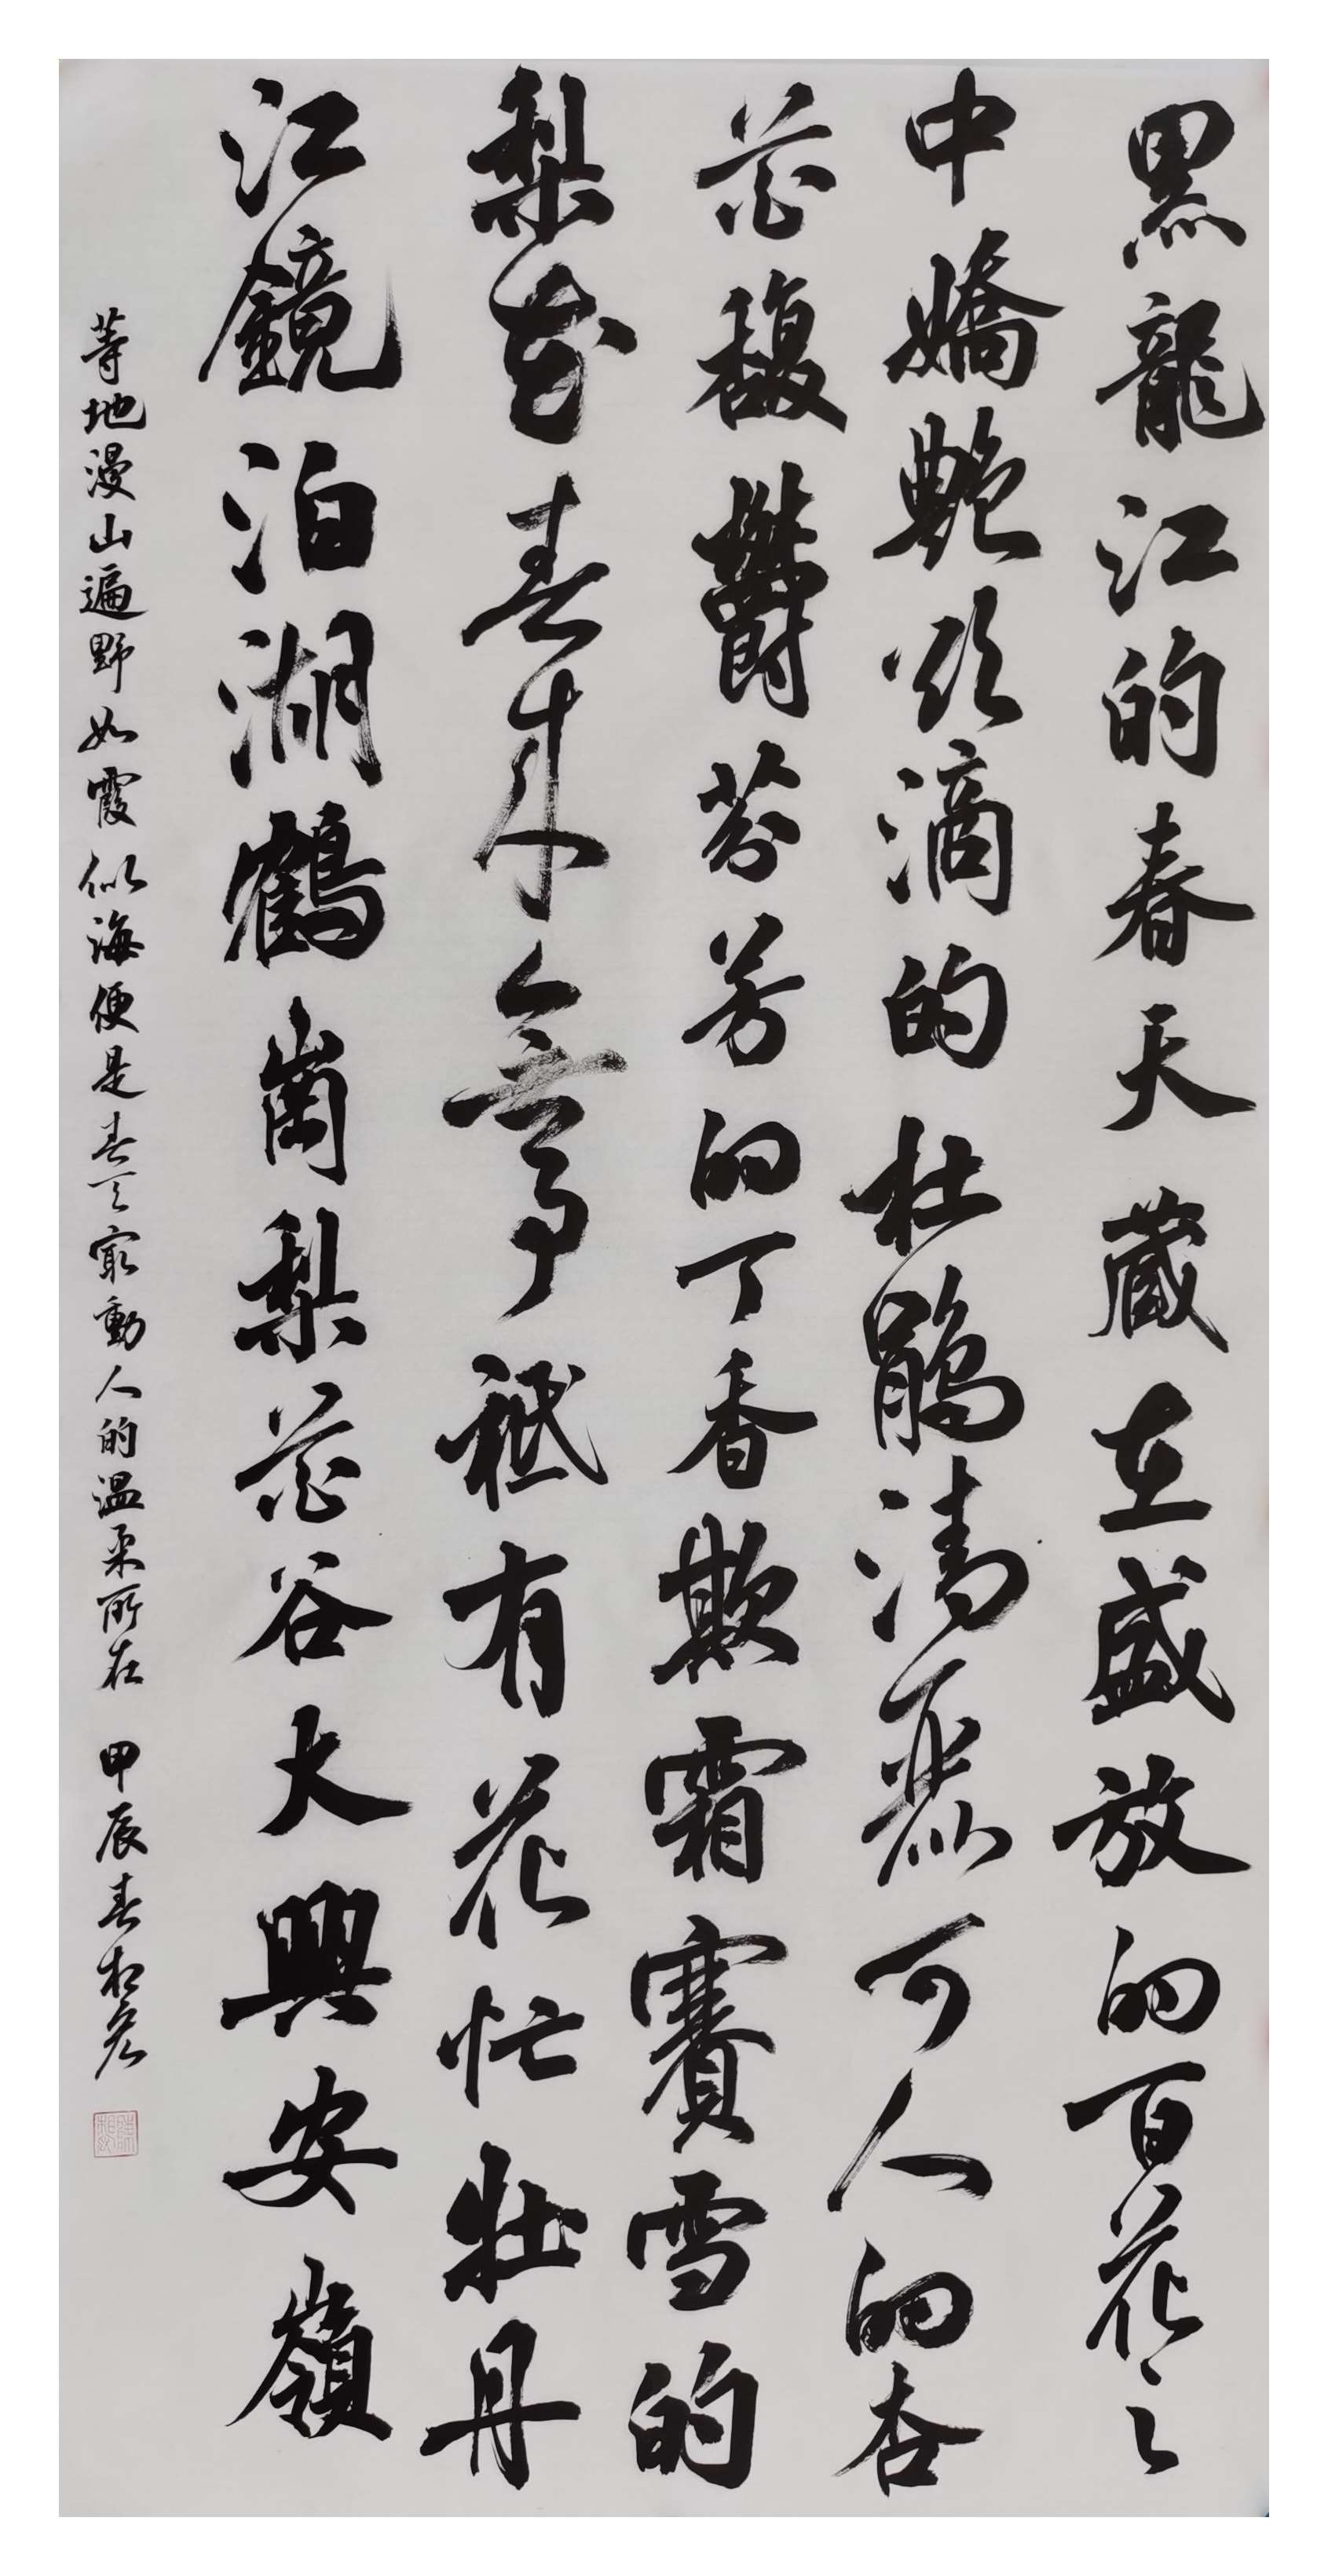 黑龍江的春天藏在盛放的百花之
中嬌艷欲滴的杜鵑清麗可人的杏
花馥鬱芬芳的丁香欺霜賽雪的
梨花春來無事祇有花忙牡丹
江鏡泊湖鶴崗梨花谷大興安嶺
等地漫山遍野如霞似海便是春天最動人的溫柔所在 甲辰春松